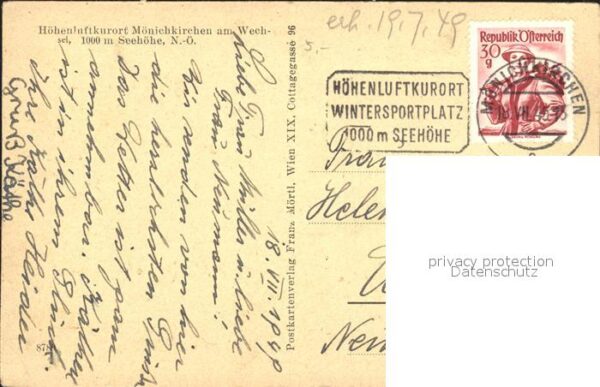 Höhenluftkurort Mönichkirchen am Wech-
sel, 1000 m Seehöhe, N.-Ö.
erh. 19.7.49
5.-
Republik Österreich
30
g
HÖHENLUFTKURORT
WINTERSPORTPLATZ
1000 m SEEHÖHE
MÖNICHKIRCHEN
Postkartenverlag Franz Mörtl, Wien XIX, Cottagegasse 96
18. VII. 1949
Liebe Frau Müller u. liebe
Frau Neumann!
Wir senden von hier
die herzlichsten Grüße
Das Wetter ist ganz
annehmbar. Käthe
ist in ihrem Glück.
Ihre
Gruß Käthe
Frau
Helen
Neu
878
privacy protection
Datenschutz